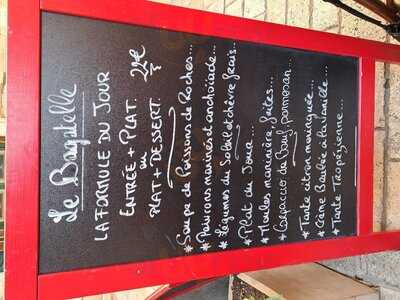 Le Bagatelle
LA FORMULE DU JOUR
ENTRÉE + PLAT.
ou 22€
PLAT + DESSERT.
* Soupe de Poissons de Roches...
* Poivrons marinés et anchoïade...
* Légumes du Soleil et chèvre frais...
* Plat du Jour...
* Moules marinière frites...
* Carpaccio de Bœuf, parmesan...
* Tarte citron meringuée...
* Crème Brûlée à la Vanille...
* Tarte Tropézienne...